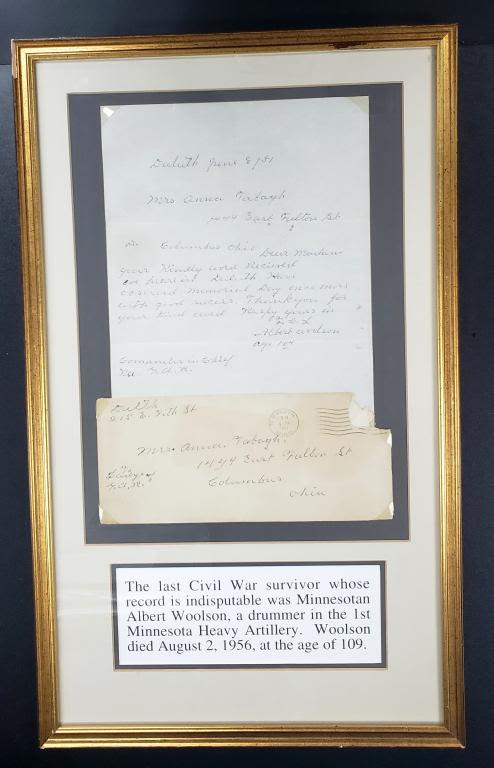 Duluth June 8/51
Mrs Anna Fabagh
1444 East Fulton St
Columbus Ohio Dear Madam
your Kindly word Recieved
Duluth Have
Memorial Day once more
with good Thank you for
your Kind word yours in
F. C. L
Albert Woolson
age 104
Comander in Chief
G. A. R.
Duluth
215 E. 5th St
Mrs. Anna Fabagh.
1444 East Fulton St
Columbus
Ohio
G. A. R.
The last Civil War survivor whose
record is indisputable was Minnesotan
Albert Woolson, a drummer in the 1st
Minnesota Heavy Artillery. Woolson
died August 2, 1956, at the age of 109.